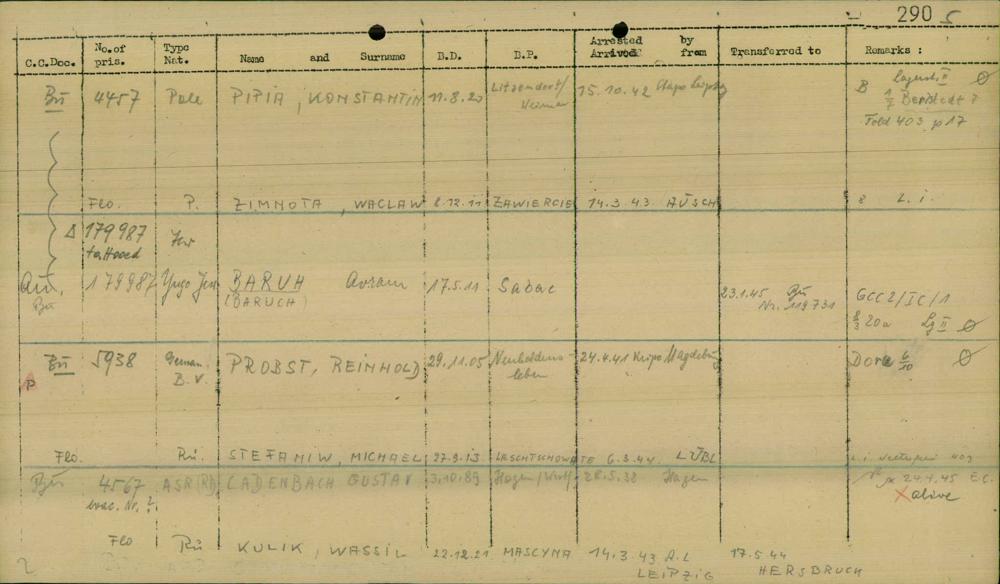 290 5
C.C.Doc. No.of pris. Type Nat. Name and Surname B.D. B.P. Arrested Arrived by from Transferred to Remarks :
Bu 4457 Pole PIPIA, KONSTANTIN 11.8.20 Litzendorf/ Weimar 15.10.42 Stapo Leipzig B Ø
Told 403 p 17
Flo. P. ZIMNOTA, WACLAW 8.12.11 ZAWIERCIE 14.3.43 AUSCH L. i.
179987
tattooed
Au. 179987 Yugo Jew BARUH Avram 17.5.11 Sabac 23.1.45 Bu GCC2/IC/1
Bu (BARUCH) Nr. 119731 20a Lg II Ø
Bu 5938 German PROBST, REINHOLD 29.11.05 Neuhaldens- 24.4.41 Kripo Magdeburg Dora 6/10 Ø
P B.V. leben
Flo. Ru. STEFANIW, MICHAEL 27.9.13 LESCHTSCHOWATE 6.3.44 LÜBL
Bu 4567 ASR (RD) LADENBACH GUSTAV 3.10.89 Hagen/Westf. 28.5.38 Hagen 24.4.45 E.C.
evac. Nr.? X alive
Flo Ru KULIK, WASSIL 22.12.21 MASCYNA 14.3.43 A.L. 17.5.44
LEIPZIG HERSBRUCK
2